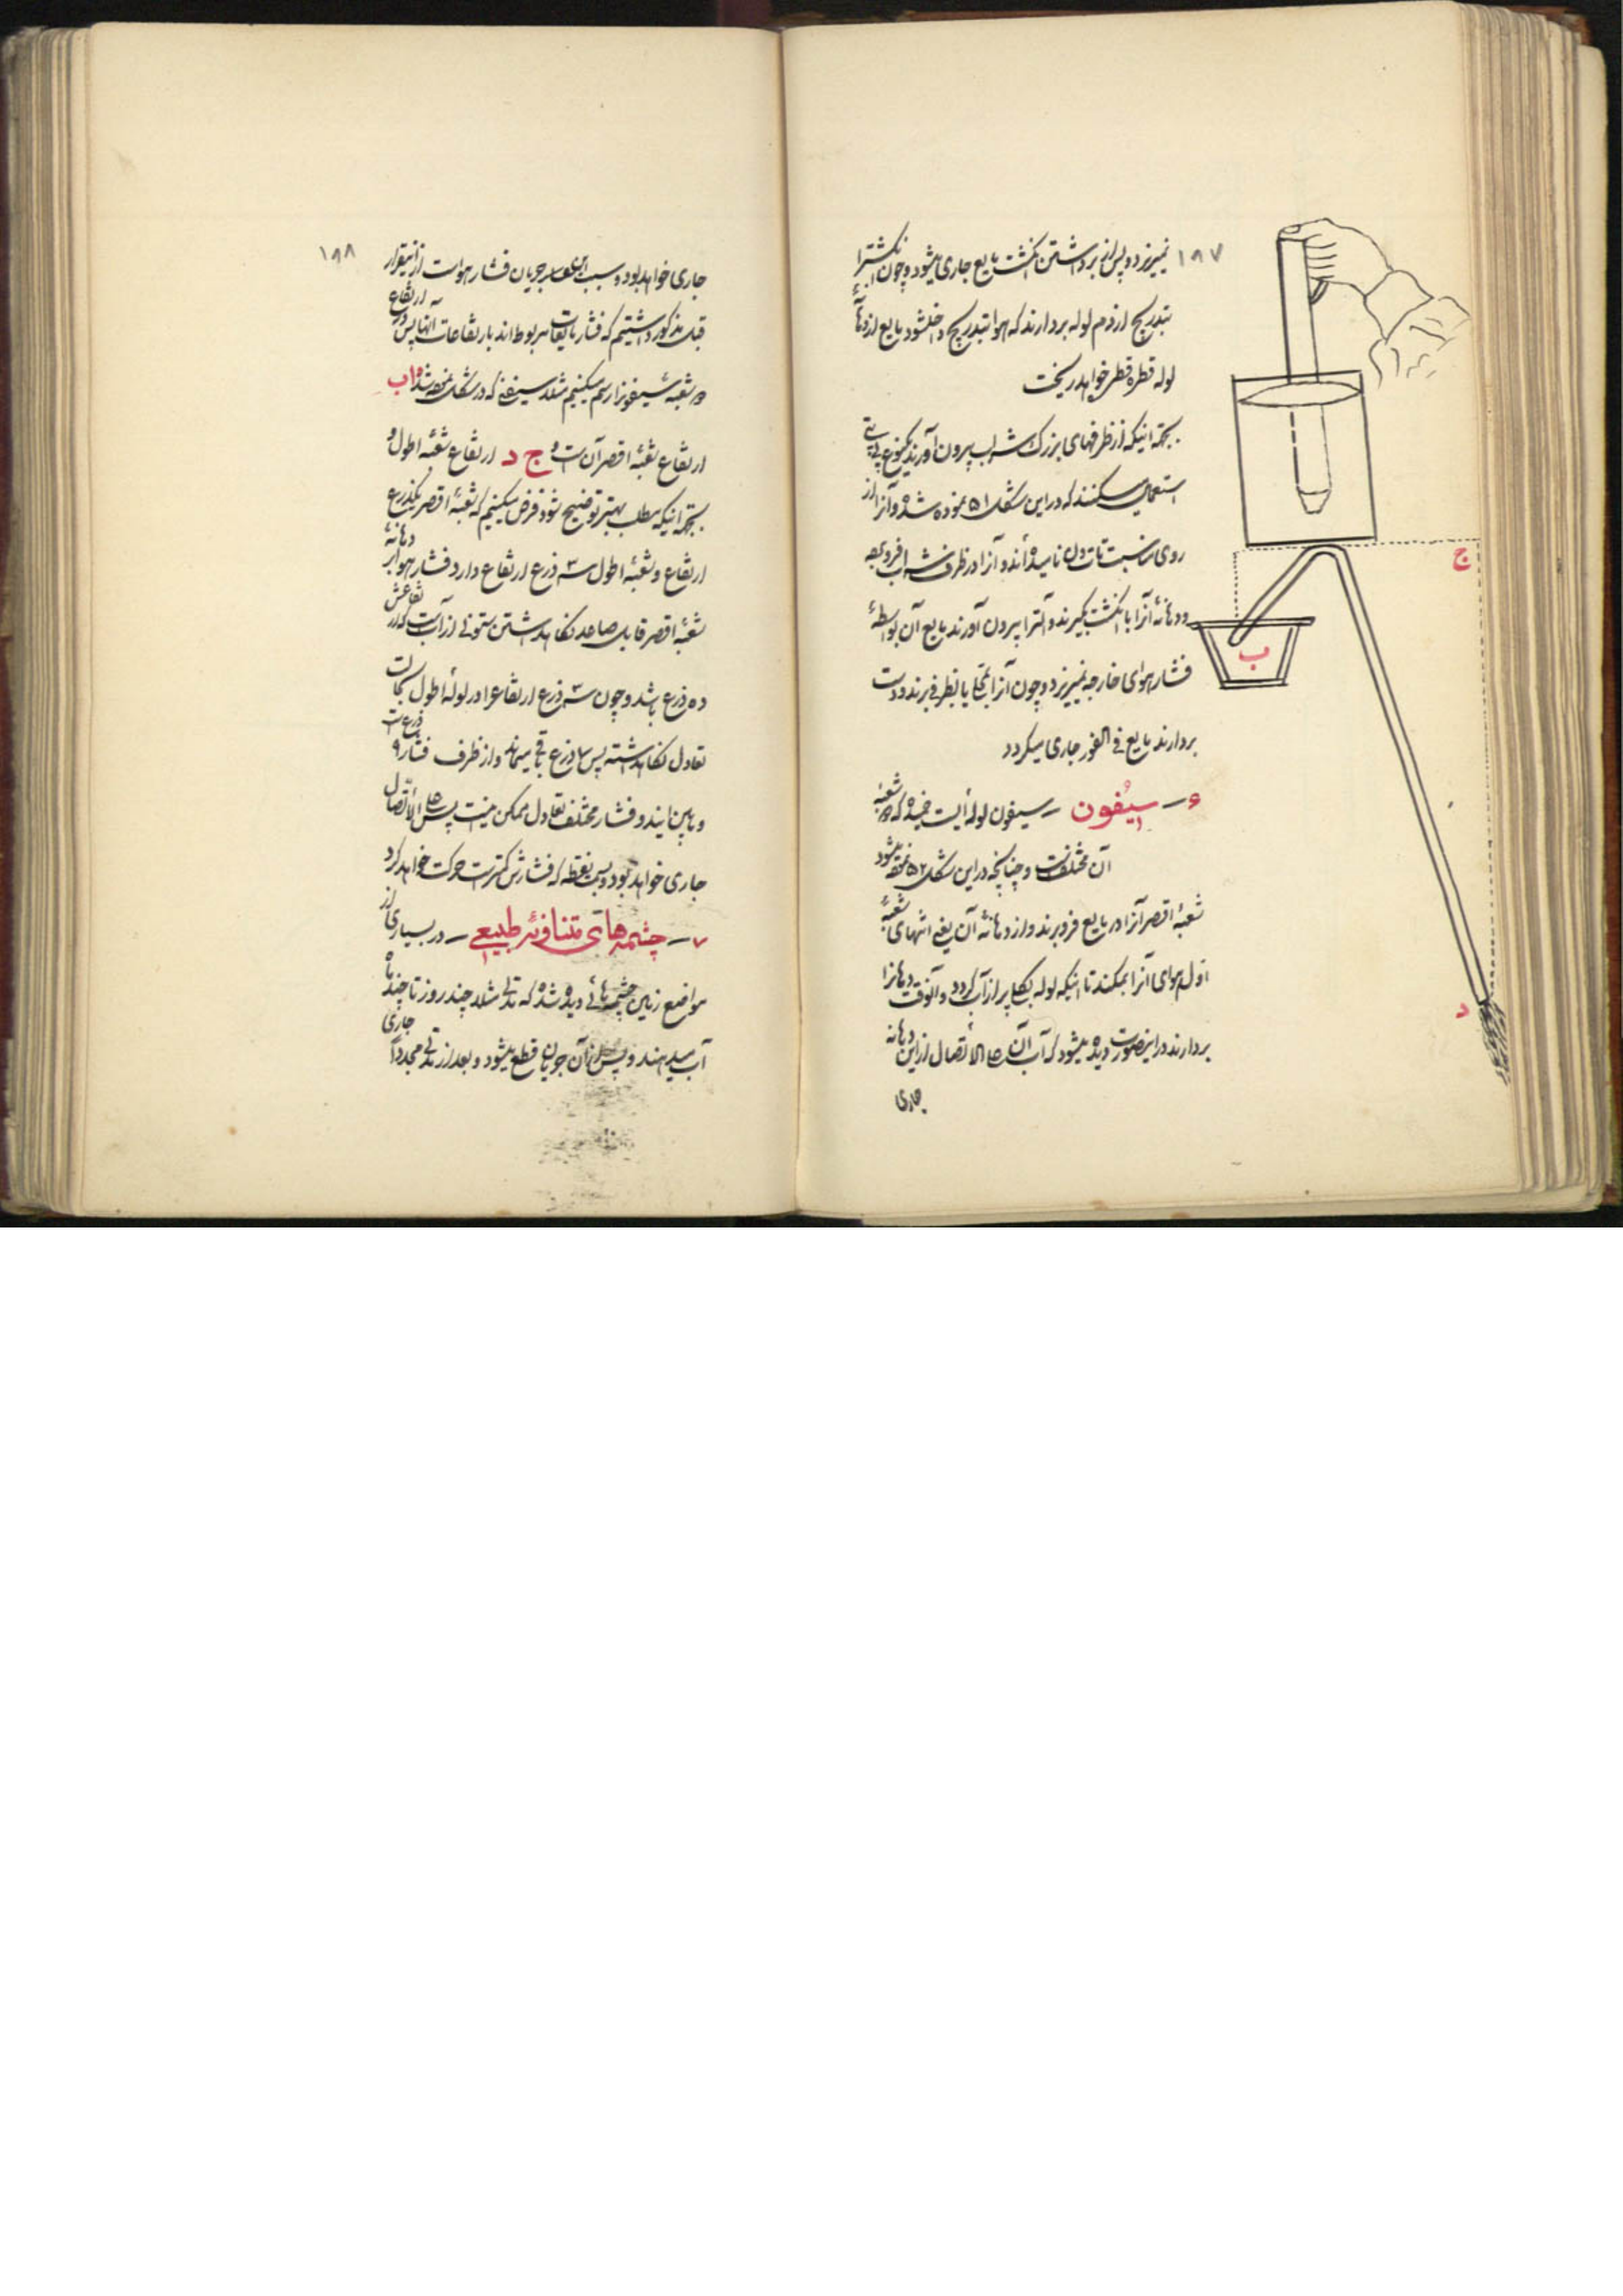 ۱۹۷
نمیریزد و پس از برداشتن انگشت مایع جاری میشود و چون انگشترا
بتدریج از دم لوله بردارند که هوا بتدریج داخلشود مایع از دهانهٔ
لوله قطره قطره خواهد ریخت
بجهة اینکه از ظرفهای بزرگ شراب بیرون آورند یکنوع پیپتی
استعمال میکنند که در این شکل ۵۱ نموده شده و آنرا از
روی مناسبت نامیده‌اند و آنرا در ظرف شراب فرو برده
و دهانهٔ آنرا با انگشت بگیرند و آلترا بیرون آورند مایع آن بواسطهٔ
فشار هوای خارجه نمیریزد و چون آنرا بمحل یا بظرفی برند و دست
بردارند مایع فی الفور جاری میگردد
۶ – سیفون – سیفون لوله‌ایست خمیده که دو شعبهٔ
آن مختلفست و چنانچه در این شکل ۵۲ ملاحظه میشود
شعبهٔ اقصر آنرا در مایع فرو برند و از دهانهٔ آن یعنی انتهای شعبهٔ
اطول هوای آنرا بمکند تا اینکه لوله بکلی پر از آب گردد و آنوقت دهانرا
بردارند در اینصورت دیده میشود که آب آن علی الاتصال از این دهانه
جاری
ج
ب
د
۱۹۸
جاری خواهد بود و سبب این جریان فشار هواست از اینقرار
قبل مذکور داشتیم که فشار مایعات مربوط‌اند بارتفاعات آنها پس در ارتفاع
دو شعبه سیفون را رسم میکنیم مثلا سیفونی که در شکل نموده شده اب
ارتفاع شعبهٔ اقصر آن است و ج د ارتفاع شعبهٔ اطول و
بجهة اینکه مطلب بهتر توضیح شود فرض میکنیم که شعبهٔ اقصر یکذرع
ارتفاع و شعبهٔ اطول سه ذرع ارتفاع دارد فشار هوا بر دهانهٔ
شعبهٔ اقصر قابل صاعد نگاهداشتن ستونی از آبست که ارتفاعش
ده ذرع باشد و چون سه ذرع ارتفاع را در لولهٔ اطول بحالت
تعادل نگاهداشته پس ۷ ذرع باقی میماند و از ظرف فشار ۹ ذرع است
و مابین ایندو فشار مختلف تعادل ممکن نیست پس علی الاتصال
جاری خواهد بود و بسمت نقطه که فشارش کمتر است حرکت خواهد کرد
۷ – چشمه‌های متناوبهٔ طبیعی – در بسیاری از
مواضع زمین چشمه‌هائی دیده شده که مدتی مثلا چند روز تا چند ماه
آب میدهند و پس از آن جریان قطع میشود و بعد از مدتی مجدداً جاری